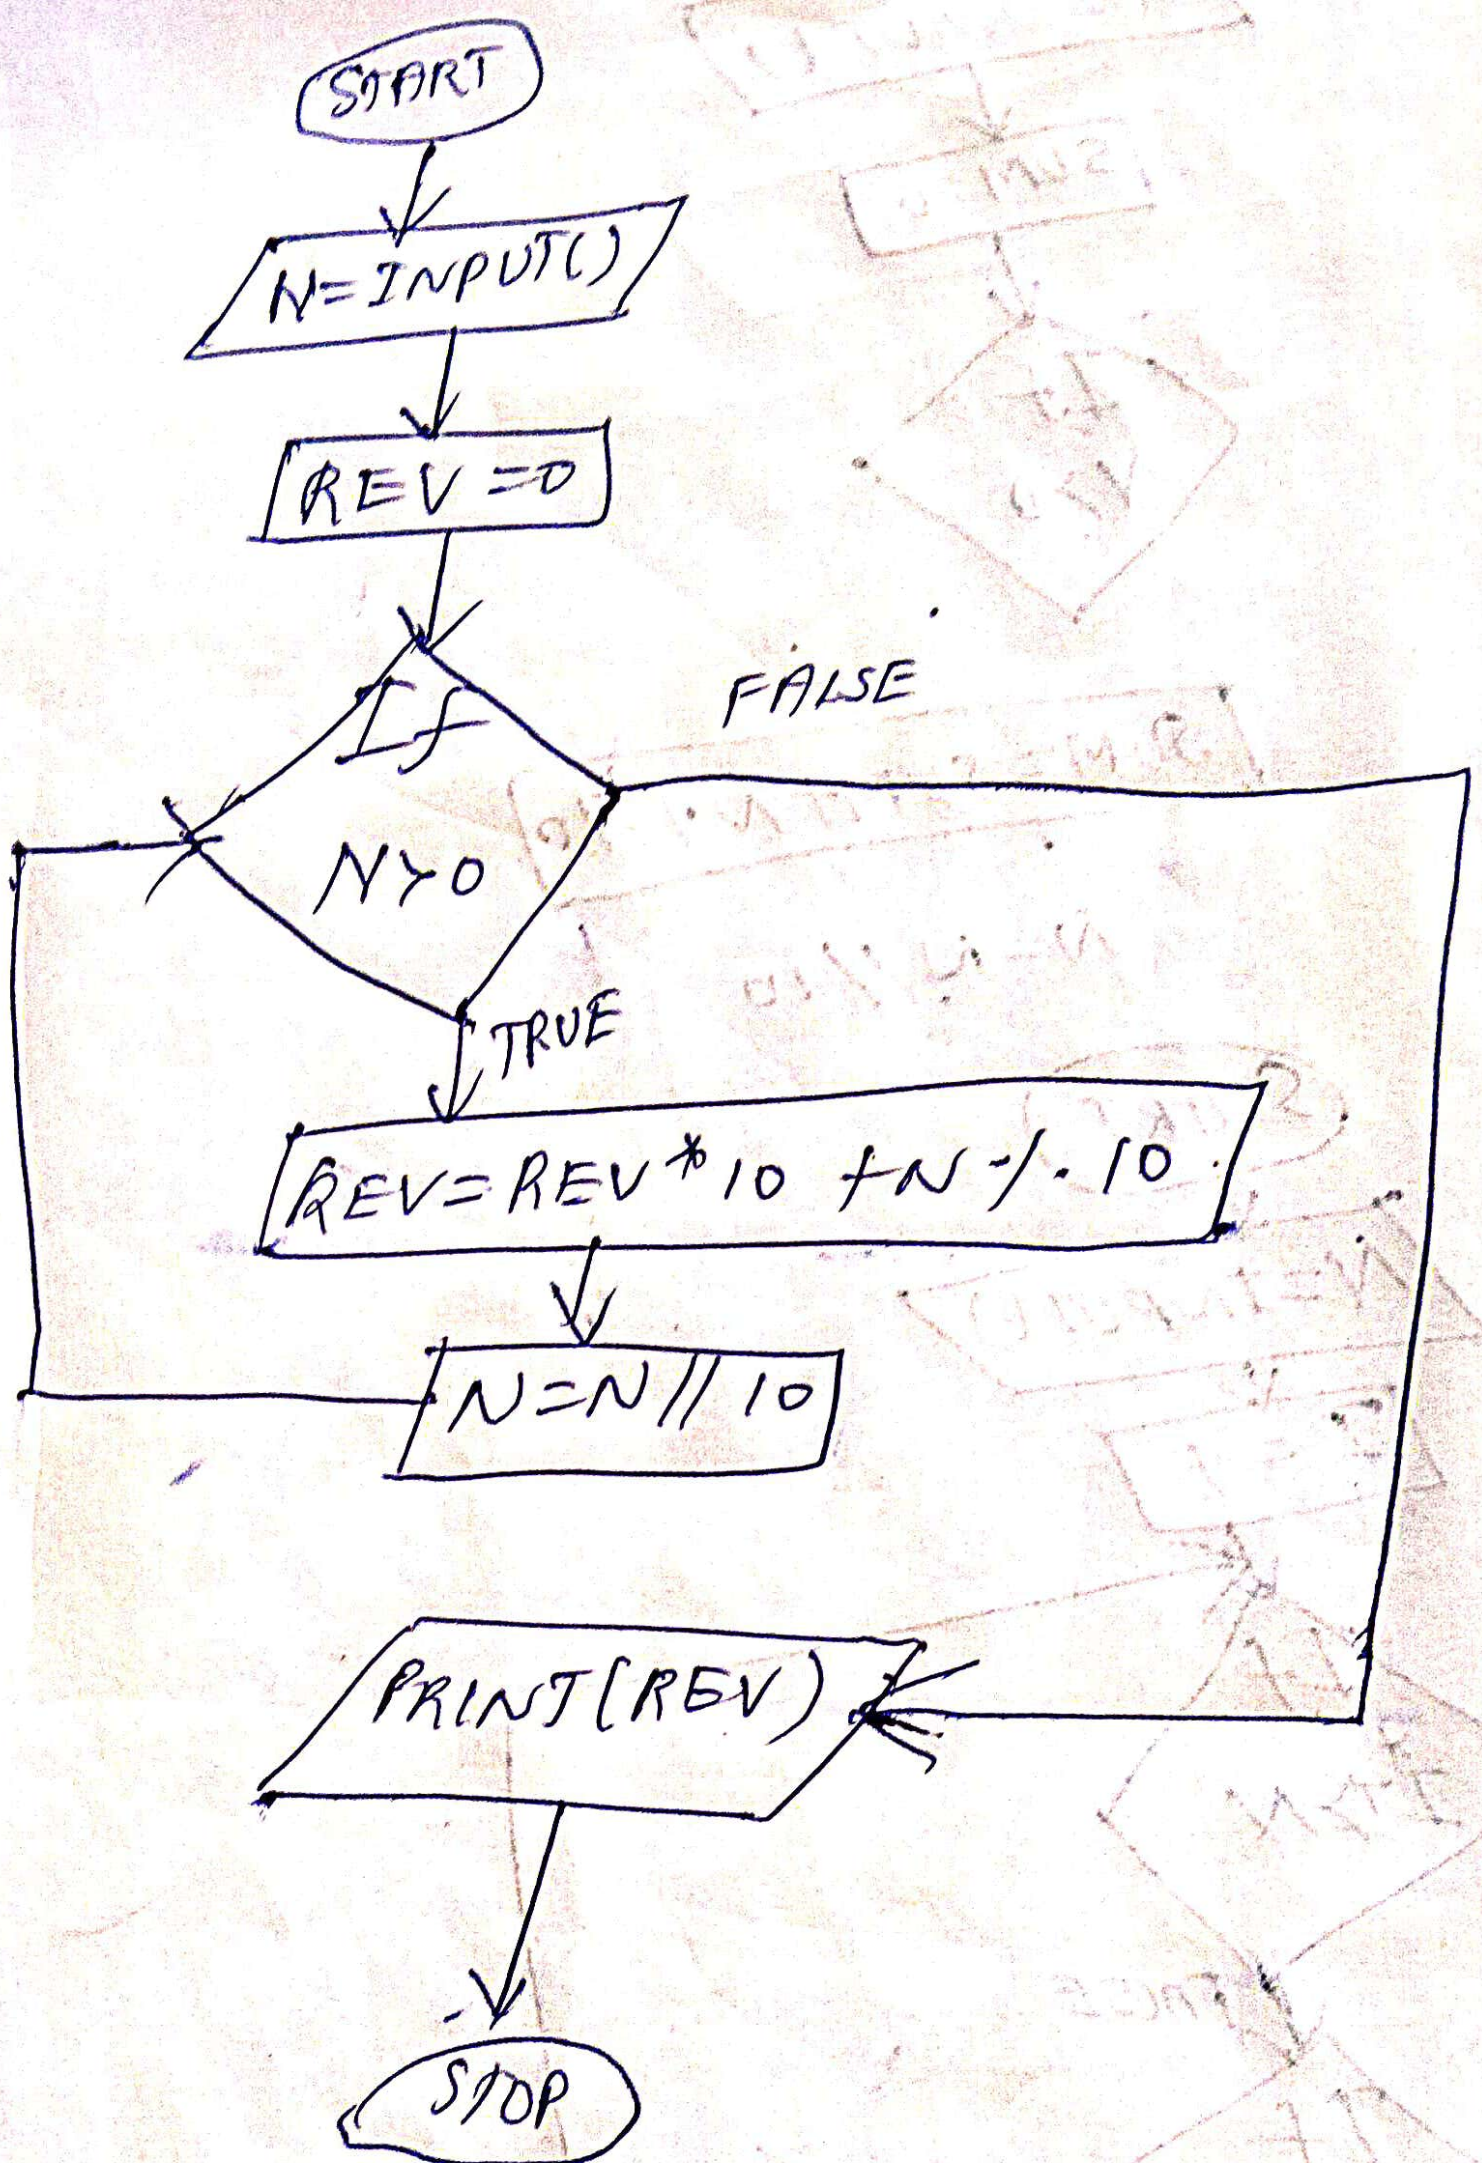 START
N=INPUT()
REV=0
If
N>0
FALSE
TRUE
REV=REV*10 +N%10
N=N//10
PRINT(REV)
STOP